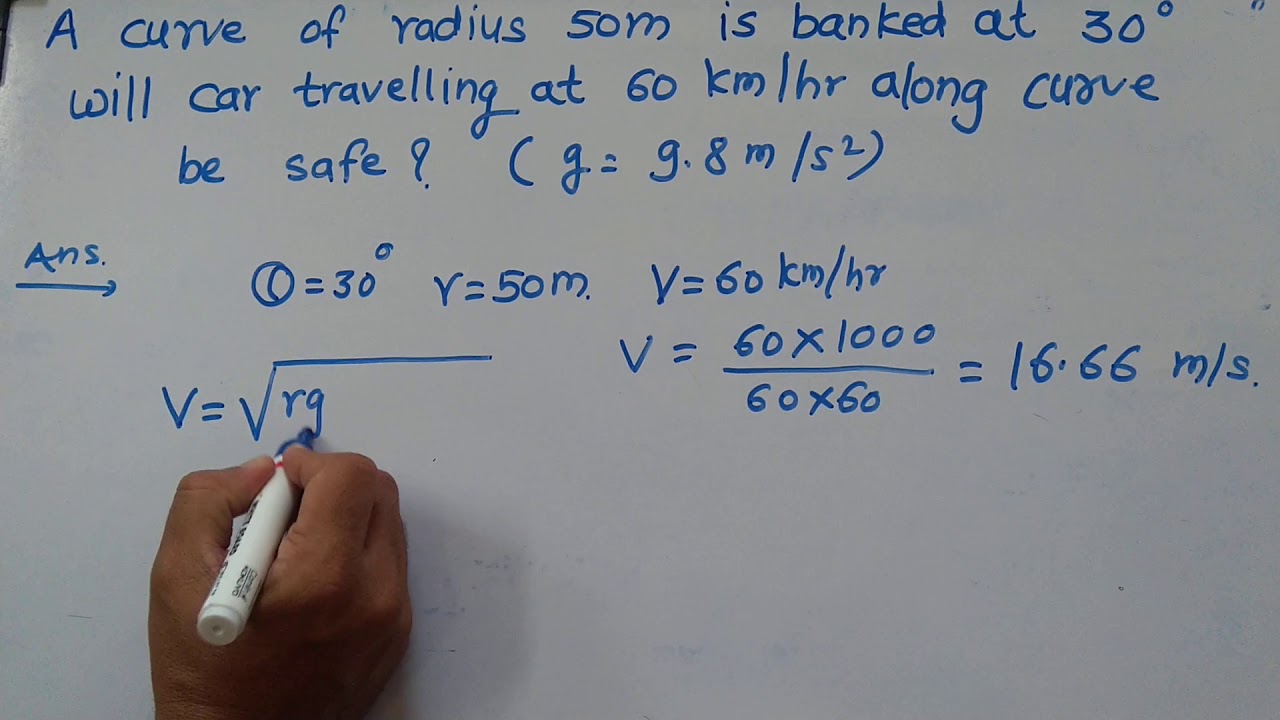 A curve of radius 50m is banked at 30°
will car travelling at 60 km/hr along curve
be safe? (g = 9.8 m/s²)
Ans.
θ = 30° r = 50m. V = 60 km/hr
V = 60 × 1000 / 60 × 60 = 16.66 m/s.
V = √rg